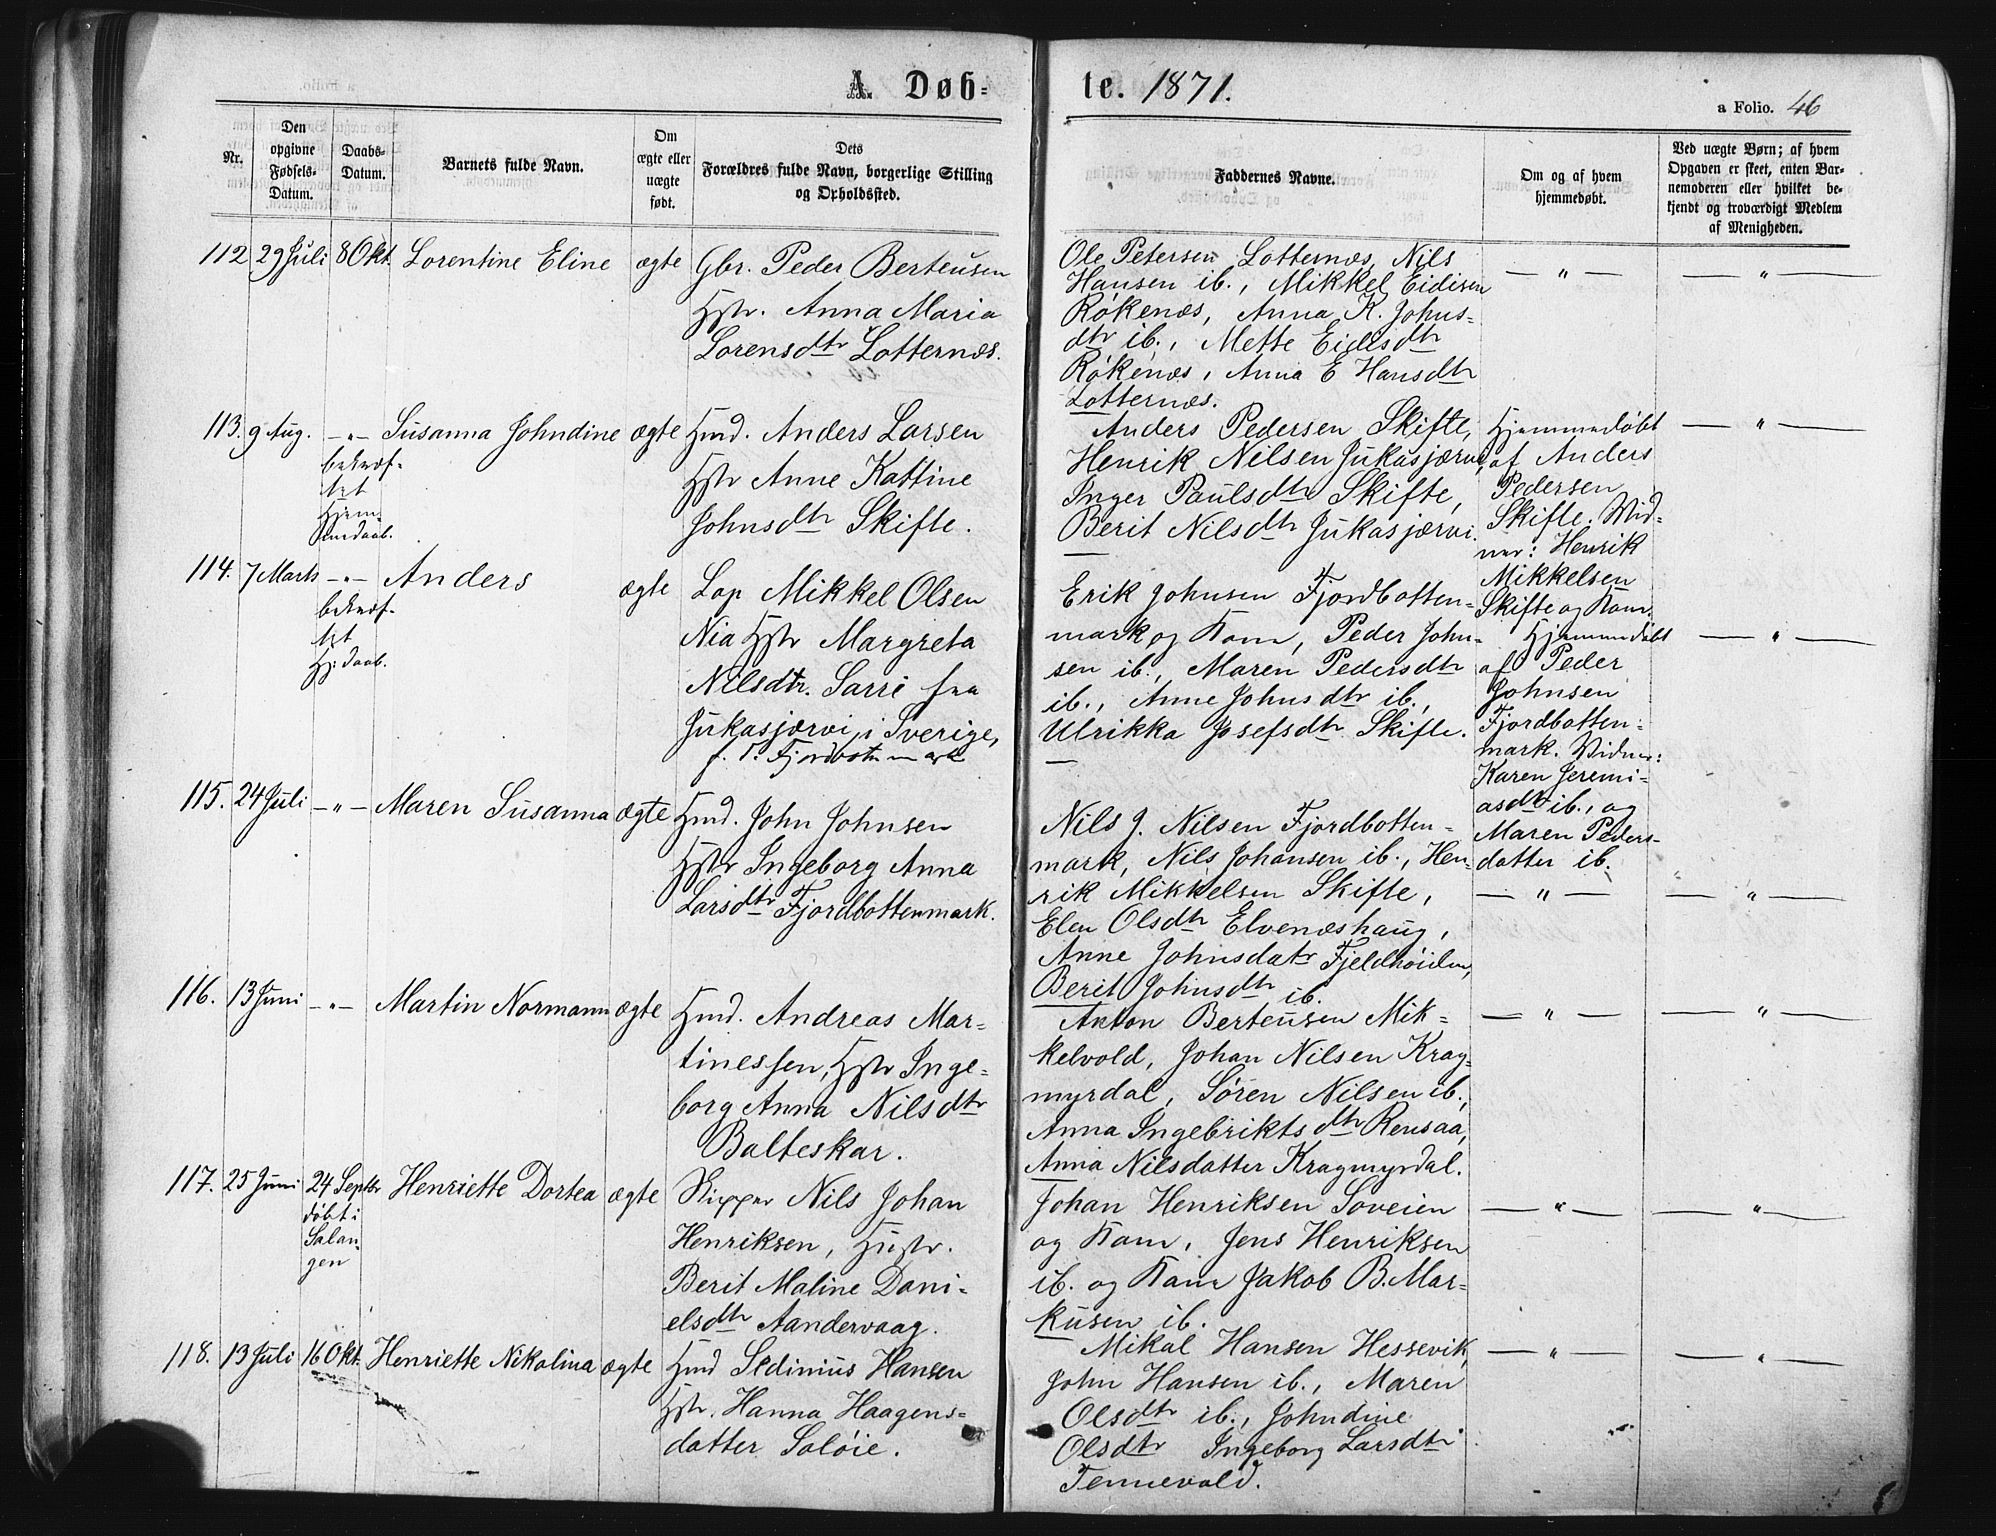 A. Døb-te. 1871.
a Folio. 46
Nr.
Den opgivne Fødsels-Datum.
Daabs-Datum.
Barnets fulde Navn.
Om ægte eller uægte født.
Dets Forældres fulde Navn, borgerlige Stilling og Opholdssted.
Faddernes Navne.
Om og af hvem hjemmedøbt.
Ved uægte Børn; af hvem Opgaven er skeet, enten Barnemoderen eller hvilket bekjendt og troværdigt Medlem af Menigheden.
112 29 Juli 8 Okt. Lorentine Eline ægte Gbr. Peder Berteusen
Hstr. Anna Maria
Lorensdtr Lotternæs.
Ole Petersen Lotternæs, Nils
Hansen ib., Mikkel Eidisen
Røkenæs, Anna K. Johns-
dtr ib., Mette Eidisdtr
Røkenæs, Anna E Hansdtr
Lotternæs.
— " — — " —
113. 9 Aug. — " — Susanna Johndine ægte Hmd. Anders Larsen
bekræf-
tet
Hjem
medaab.
Hstr Anne Kattine
Johnsdtr Skifte.
Anders Pedersen Skifte,
Henrik Nilsen Jukasjærvi,
Inger Paulsdtr Skifte,
Berit Nilsdtr Jukasjærvi.
Hjemmedøbt
af Anders
Pedersen
Skifte. Wid-
ner: Henrik
Mikkelsen
Skifte og Kone.
— " —
114. 7 Marts — " — Anders ægte Lap Mikkel Olsen
bekræf-
tet
Hj: daab.
Nia Hstr Margreta
Nilsdtr. Sarri fra
Jukasjærvi i Sverige,
f. T. Fjordbotnmark
Erik Johnsen Fjordbotten-
mark og Kone, Peder John-
sen ib., Maren Pedersdtr
ib., Anne Johnsdtr ib.,
Ulrikka Josefsdtr Skifte.
Hjemmedøbt
af Peder
Johnsen
Fjordbotten-
mark. Widner:
Karen Jeremi-
asdtr ib., og
Maren Peders-
datter ib.
— " —
115. 24 Juli — " — Maren Susanna ægte Hmd. John Johnsen
Hstr Ingeborg Anna
Larsdtr Fjordbottenmark.
Nils J. Nilsen Fjordbotten-
mark, Nils Johansen ib., Hen-
rik Mikkelsen Skifte,
Elen Olsdtr Elvenæshaug,
Anne Johnsdatr Fjeldhøiden,
Berit Johnsdtr ib.
— " — — " —
116. 13 Juni — " — Martin Normann ægte Hmd. Andreas Mar-
tinessen, Hstr Inge-
borg Anna Nilsdtr
Balteskar.
Anton Berteusen Mik-
kelvold, Johan Nilsen Krag-
myrdal, Søren Nilsen ib.,
Anna Ingebriktsdtr Rensaa,
Anna Nilsdatter Kragmyrdal.
— " — — " —
117. 25 Juni 24 Septbr Henriette Dortea ægte Skipper Nils Johan
døbt i
Salan-
gen
Henriksen, Hustr.
Berit Maline Dani-
elsdtr Aandervaag.
Johan Henriksen Soveien
og Kone, Jens Henriksen
ib. og Kone Jakob B. Mar-
kusen ib.
— " — — " —
118. 13 Juli 16 Okt. Henriette Nikolina ægte Hmd Sedinius Hansen
Hstr. Hanna Haagens-
datter Saløie.
Mikal Hansen Hessevik,
John Hansen ib., Maren
Olsdtr ib., Johndine
Olsdtr Ingeborg Larsdtr
Tennevold.
— " — — " —